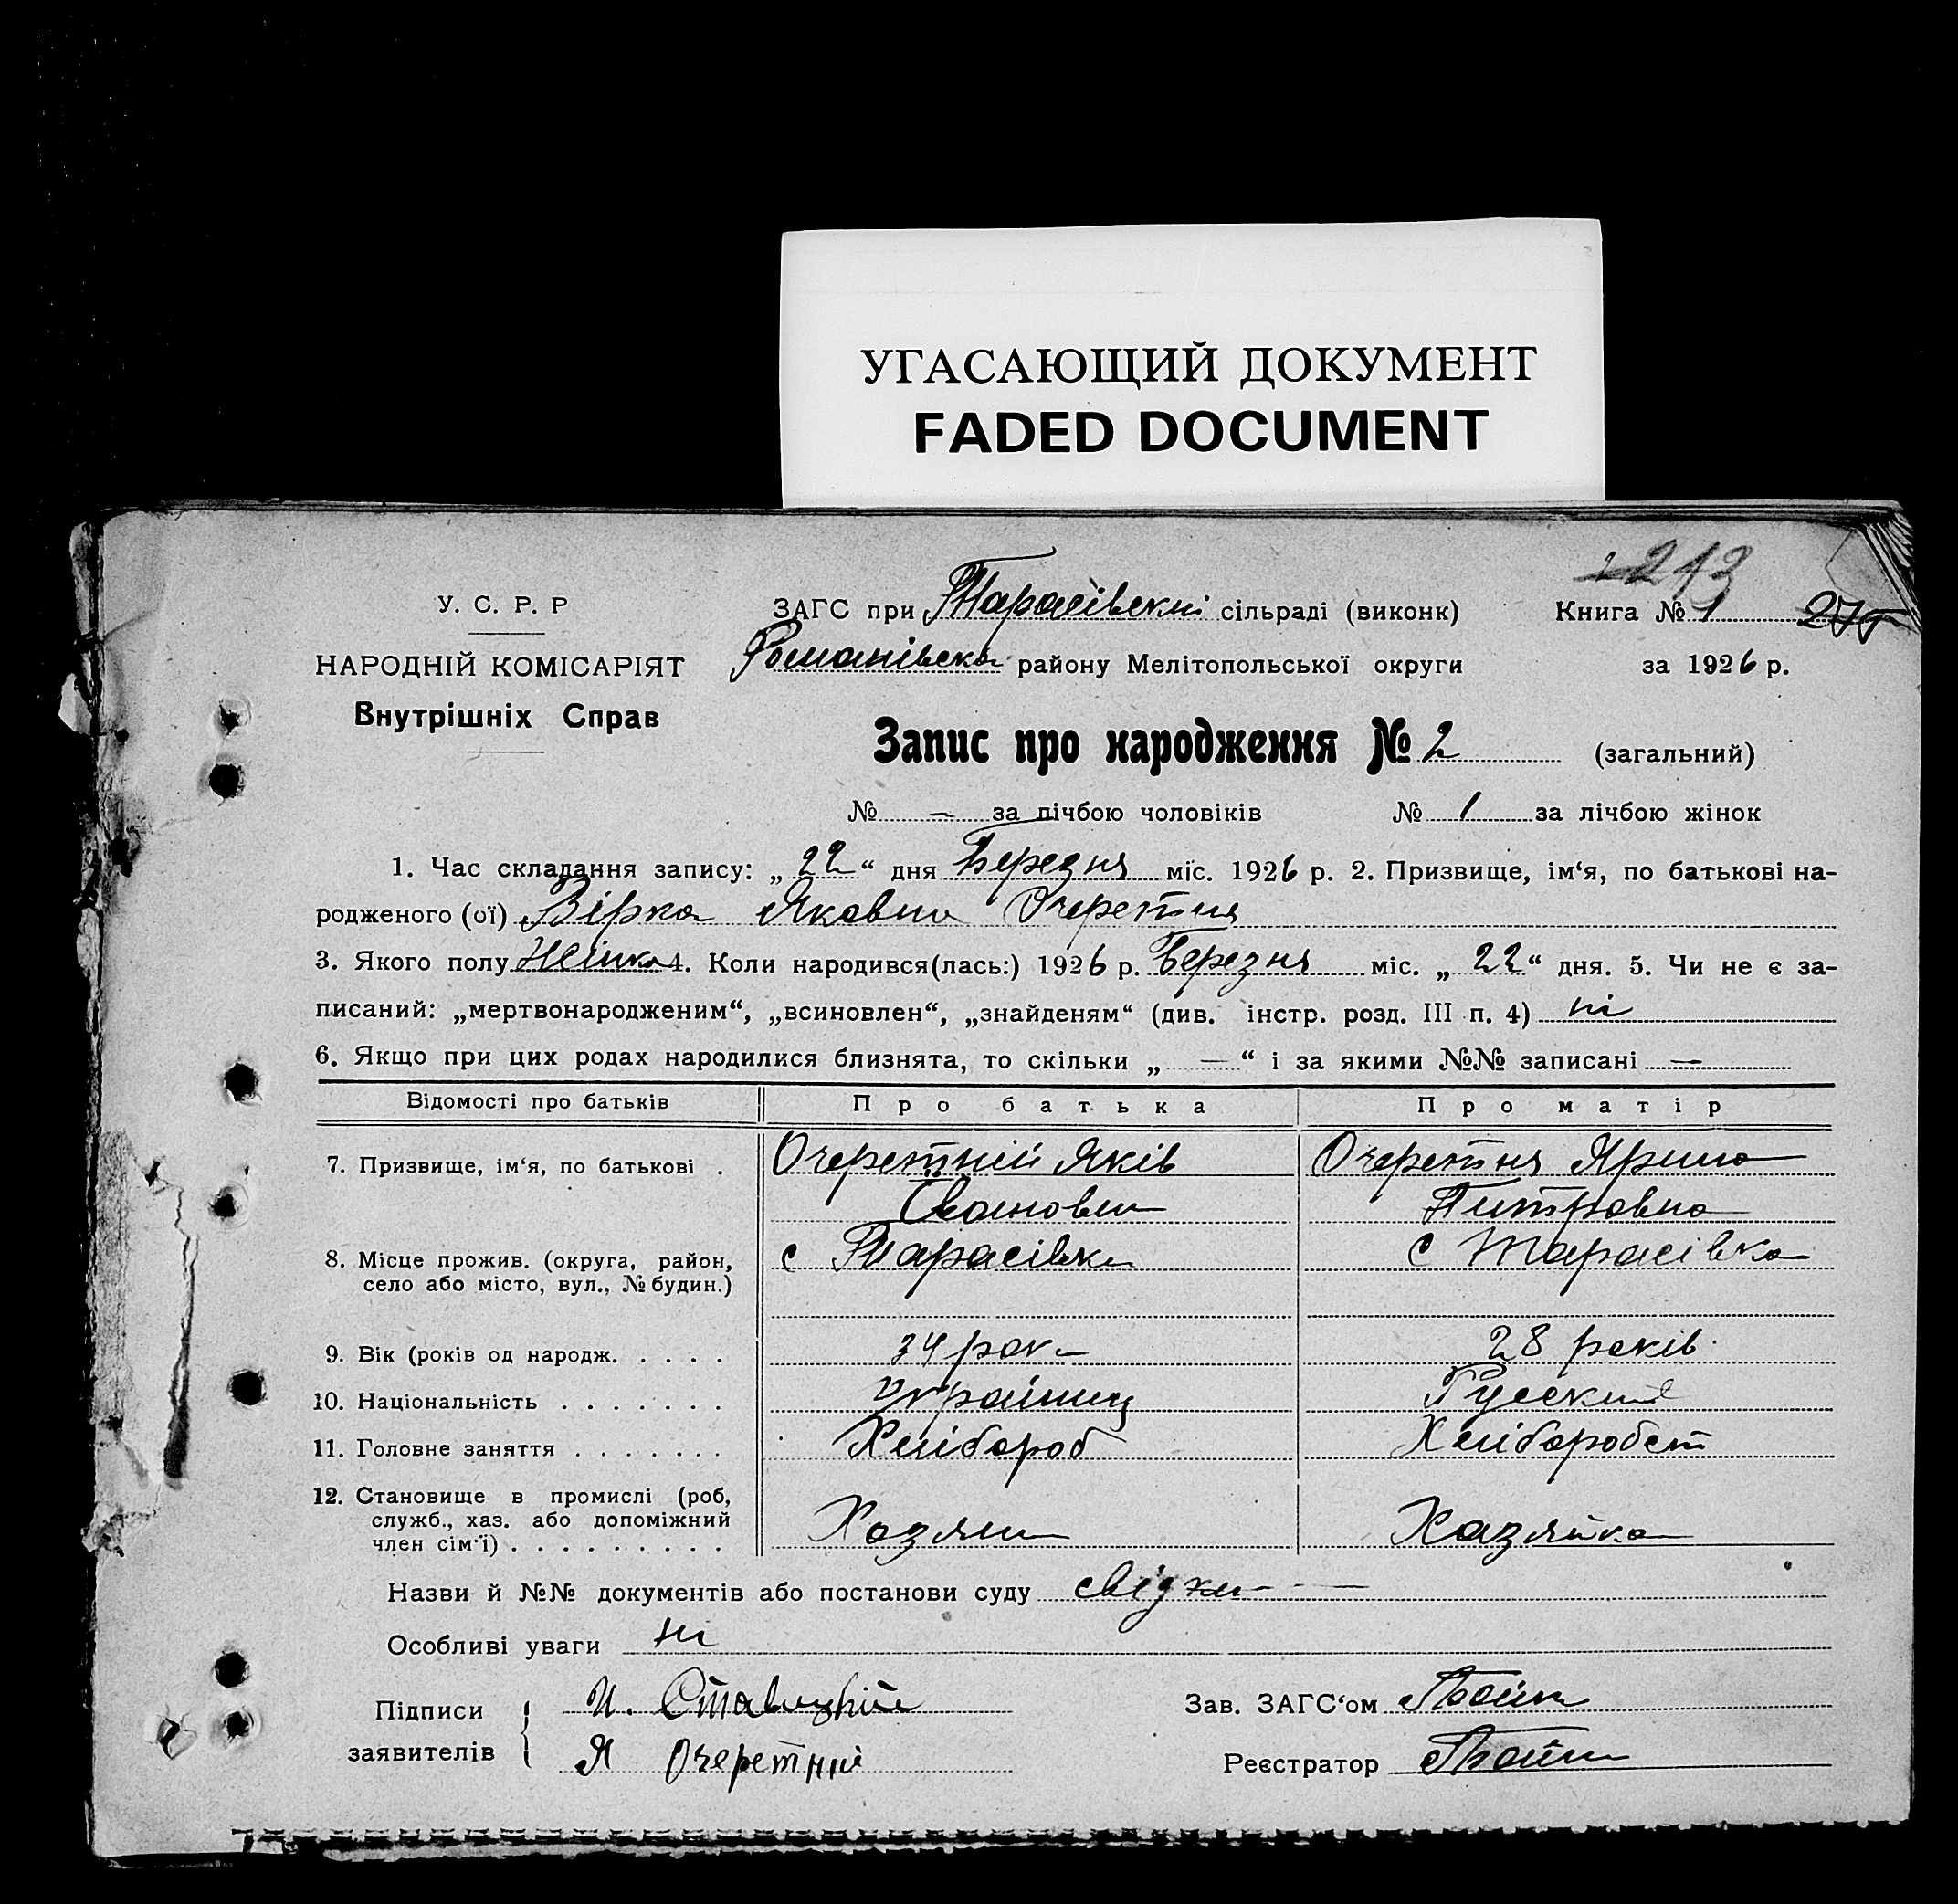 УГАСАЮЩИЙ ДОКУМЕНТ
FADED DOCUMENT
213
У. С. Р. Р
ЗАГС при Тарасівскі сільраді (виконк)
Книга № 1
275
НАРОДНІЙ КОМІСАРІЯТ
Романівска району Мелітопольської округи
за 1926 р.
Внутрішніх Справ
Запис про народження № 2 (загальний)
№ — за лічбою чоловіків № 1 за лічбою жінок
1. Час складання запису: „22“ дня Березня міс. 1926 р. 2. Призвище, ім‘я, по батькові на-
родженого (ої) Вірка Яковна Очеретня
3. Якого полу Жінка 4. Коли народився(лась:) 1926 р. Березня міс. „22“ дня. 5. Чи не є за-
писаний: „мертвонародженим“, „всиновлен“, „знайденям“ (див. інстр. розд. III п. 4) ні
6. Якщо при цих родах народилися близнята, то скільки „—“ і за якими №№ записані —
Відомості про батьків Про батька Про матір
7. Призвище, ім‘я, по батькові . Очеретній Яків Очеретня Ярина
Іванович Питровна
8. Місце прожив. (округа, район, с Тарасівка с Тарасівка
село або місто, вул., № будин.)
9. Вік (років од народж. . . . . 34 рок 28 років
10. Національність . . . . . . . Українец Русский
11. Головне заняття . . . . . . . Хлібороб Хліборобст
12. Становище в промислі (роб,
служб., хаз. або допоміжний Хозяин Хазяйка
член сім‘ї) . . . . . . . . .
Назви й №№ документів або постанови суду свідки
Особливі уваги ні
Підписи И. Зав. ЗАГС‘ом
заявителів Я Очеретній Реєстратор